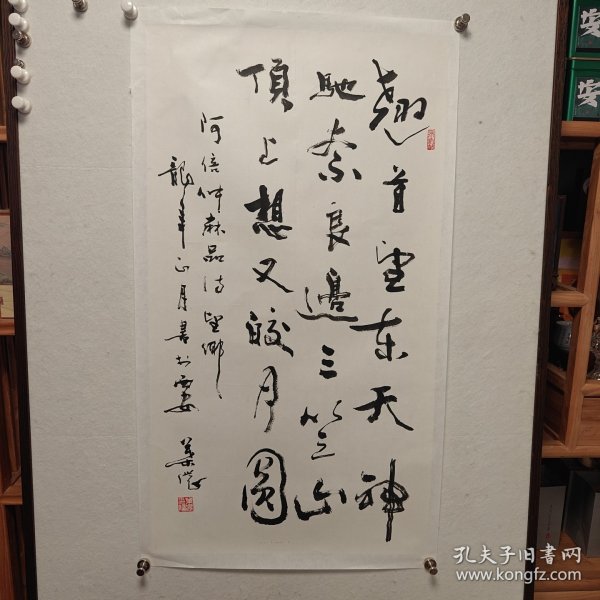 翘首望东天神
驰奈良边三笠山
顶上想又皎月圆
阿倍仲麻吕诗望乡
龙年正月书於西安
安
安
孔夫子旧书网
www.kongfz.com